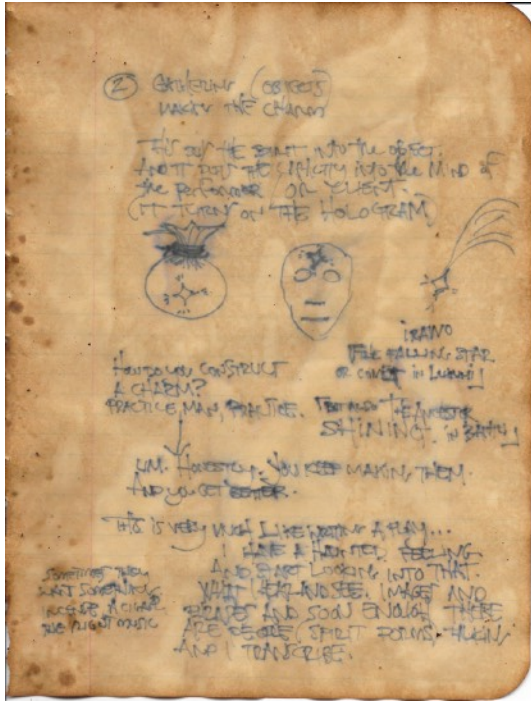 ② GATHERING (OBJECTS)
MAKING THE CHARM
THIS PUTS THE SPIRIT INTO the OBJECT.
AND IT PUTS THE SPECIFICITY into the MIND of
the PERFORMER OR CLIENT.
(IT TURNS ON THE HOLOGRAM)
IRAWO
THE FALLING STAR
OR COMET IN
HOW DO YOU CONSTRUCT
A CHARM?
PRACTICE, MAN, PRACTICE.
BUT ALSO THE ANCESTOR
SHINING. IN
UM. HONESTLY. YOU KEEP MAKING THEM.
AND YOU GET BETTER.
THIS IS VERY MUCH LIKE WRITING A PLAY...
I HAVE A HAUNTED FEELING
AND START LOOKING INTO THAT.
WHAT I HEAR AND SEE. IMAGES AND
AND SOON ENOUGH THERE
ARE PEOPLE (SPIRIT FORMS) TALKING
AND I TRANSCRIBE.
SOMETIMES THEY
WANT SOMETHING,
INCENSE, A CIGAR,
THE RIGHT MUSIC